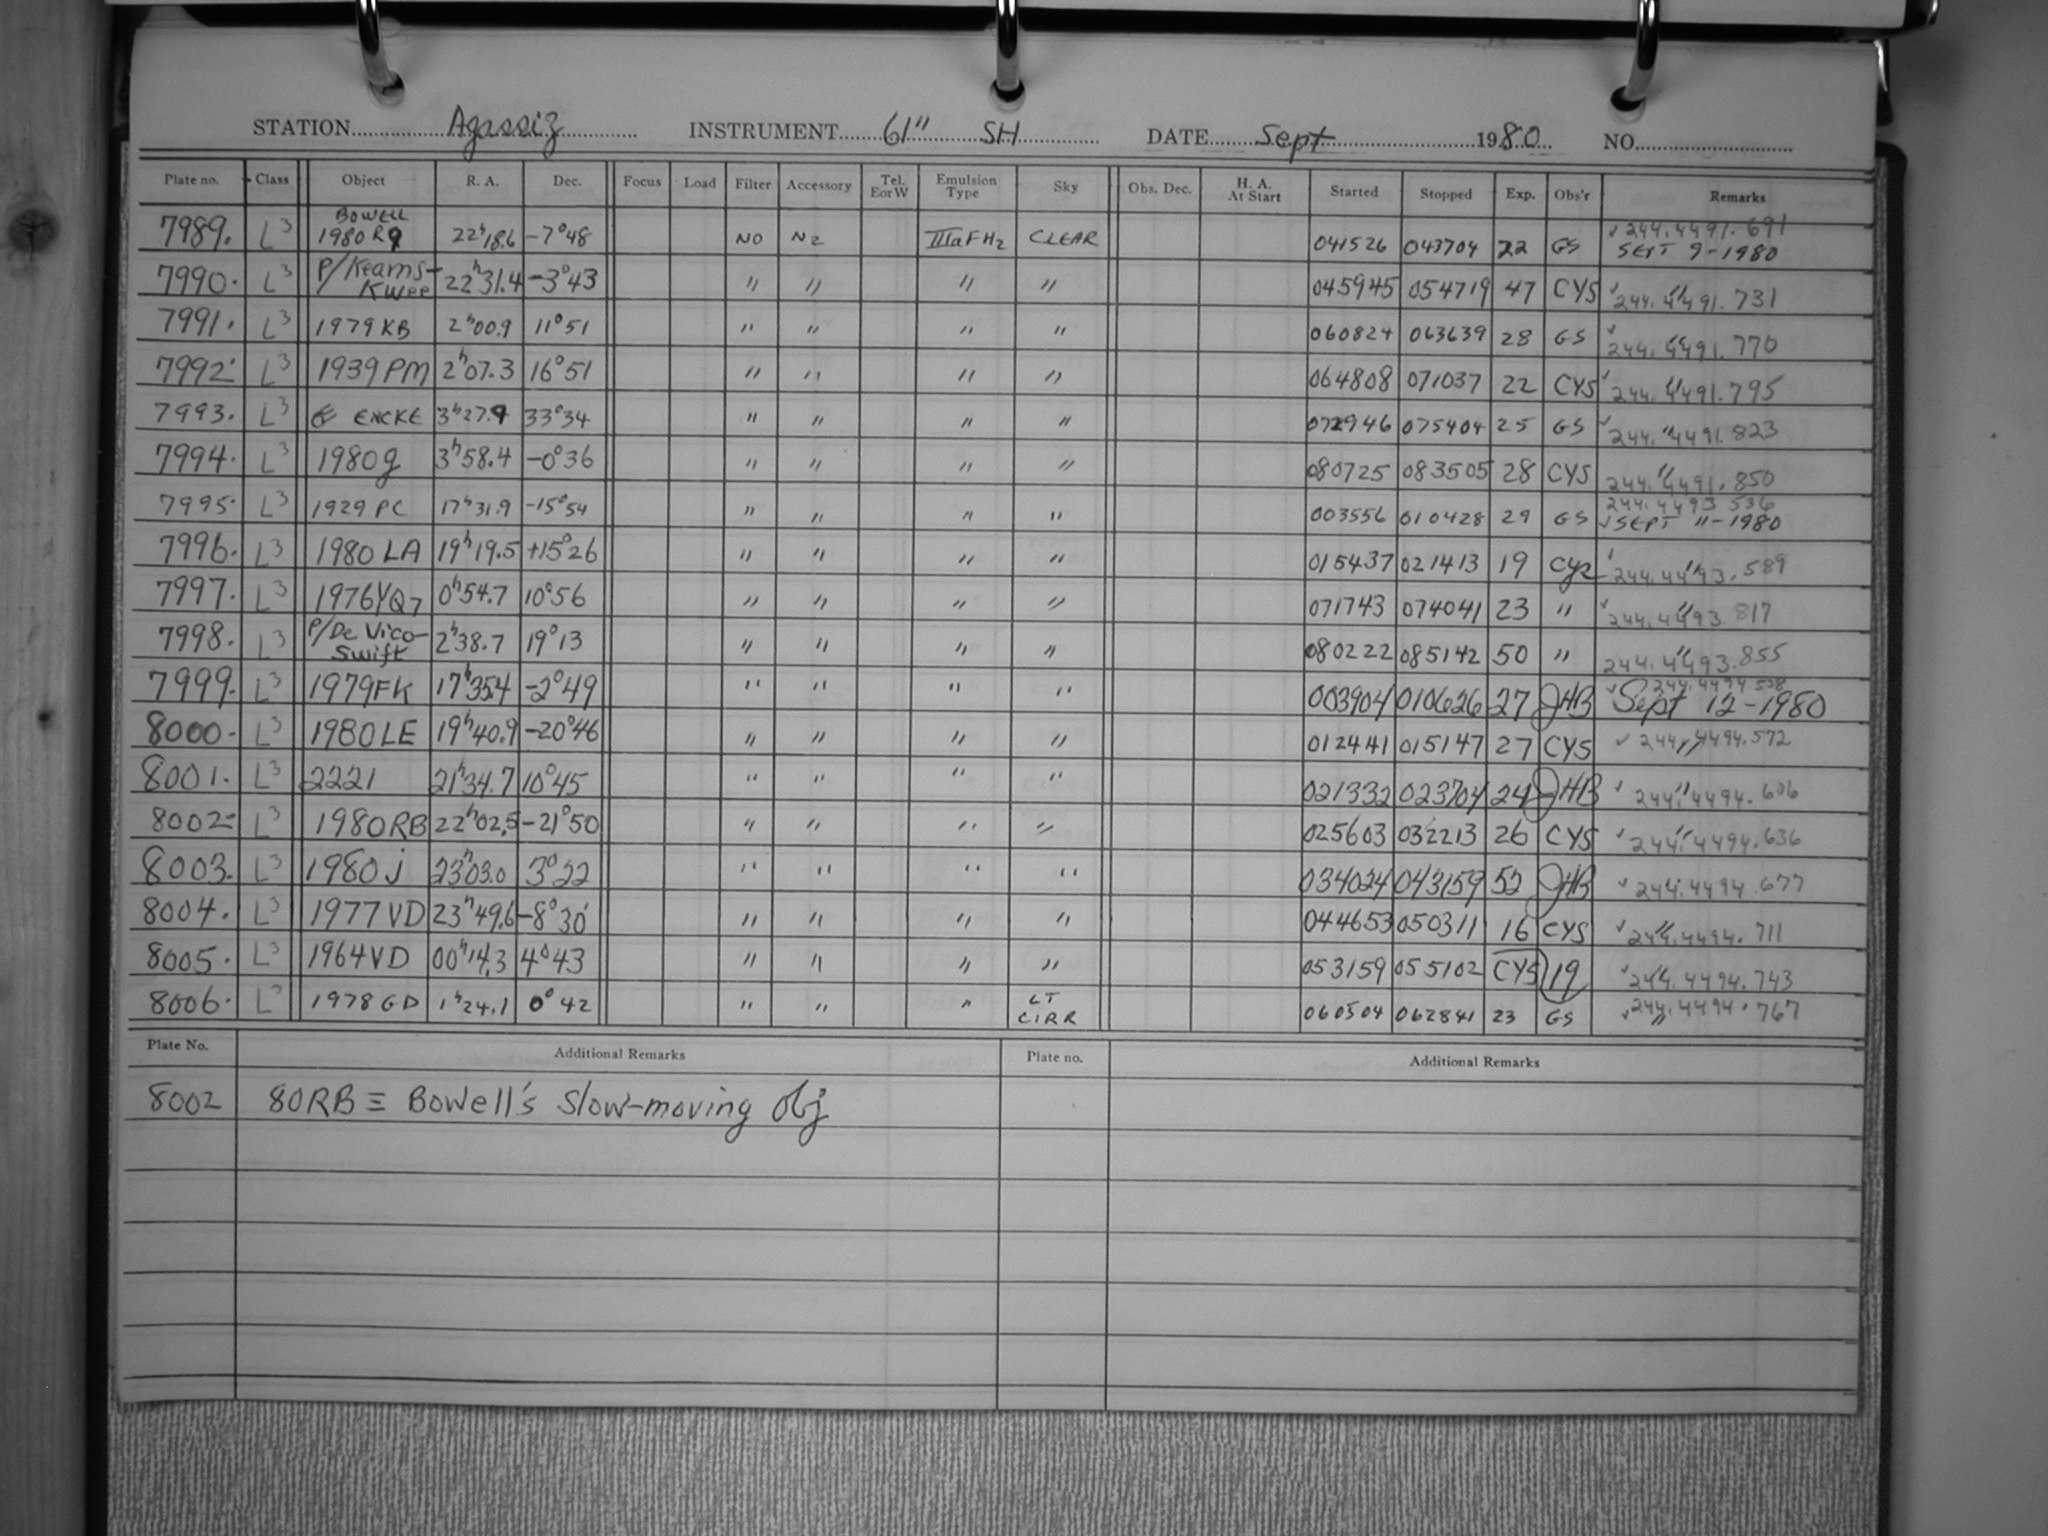 STATION Agassiz INSTRUMENT 61" SH DATE Sept 1980 NO.
Plate no. Class Object R. A. Dec. Focus Load Filter Accessory Tel. E or W Emulsion Type Sky Obs. Dec. H. A. At Start Started Stopped Exp. Obs'r Remarks
7989. L3 BOWELL 1980 R9 22h18.6 -7°48 NO N2 IIIaFH2 CLEAR 041526 043704 22 GS ✓ 244.4491.691 SEPT 9-1980
7990. L3 P/Kearns-Kwee 22h31.4 -3°43 " " " " 045945 054719 47 CYS ✓ " 244.4491.731
7991. L3 1979 KB 2h00.9 11°51 " " " " 060824 063639 28 GS ✓ " 244.4491.770
7992. L3 1939 PM 2h07.3 16°51 " " " " 064808 071037 22 CYS ✓ " 244.4491.795
7993. L3 ENCKE 3h27.9 33°34 " " " " 072946 075404 25 GS ✓ " 244.4491.823
7994. L3 1980g 3h58.4 -0°36 " " " " 080725 083505 28 CYS " 244.4491.850
7995. L3 1929 PC 17h31.9 -15°54 " " " " 003556 010428 29 GS 244.4493.536 ✓ SEPT 11-1980
7996. L3 1980 LA 19h19.5 +15°26 " " " " 015437 021413 19 CYS ✓ " 244.4493.589
7997. L3 1976YQ7 0h54.7 10°56 " " " " 071743 074041 23 " ✓ " 244.4493.817
7998. L3 P/De Vico-Swift 2h38.7 19°13 " " " " 080222 085142 50 " " 244.4493.855
7999. L3 1979FK 17h35.4 -2°49 " " " " 003904 010626 27 JHB ✓ 244.4494.538 Sept 12-1980
8000. L3 1980LE 19h40.9 -20°46 " " " " 012441 015147 27 CYS ✓ " 244.4494.572
8001. L3 2221 21h34.7 10°45 " " " " 021332 023704 24 JHB ✓ " 244.4494.606
8002. L3 1980RB 22h02.5 -21°50 " " " " 025603 032213 26 CYS ✓ " 244.4494.636
8003. L3 1980j 23h03.0 3°22 " " " " 034024 043159 52 JHB ✓ " 244.4494.677
8004. L3 1977 VD 23h49.6 -8°30' " " " " 044653 050311 16 CYS ✓ " 244.4494.711
8005. L3 1964VD 00h14.3 4°43 " " " " 053159 055102 CYS 19 ✓ " 244.4494.743
8006. L3 1978 GD 1h24.1 0°42 " " " LT CIRR 060504 062841 23 GS ✓ " 244.4494.767
Plate No. Additional Remarks Plate no. Additional Remarks
8002 80RB ≡ Bowell's slow-moving obj